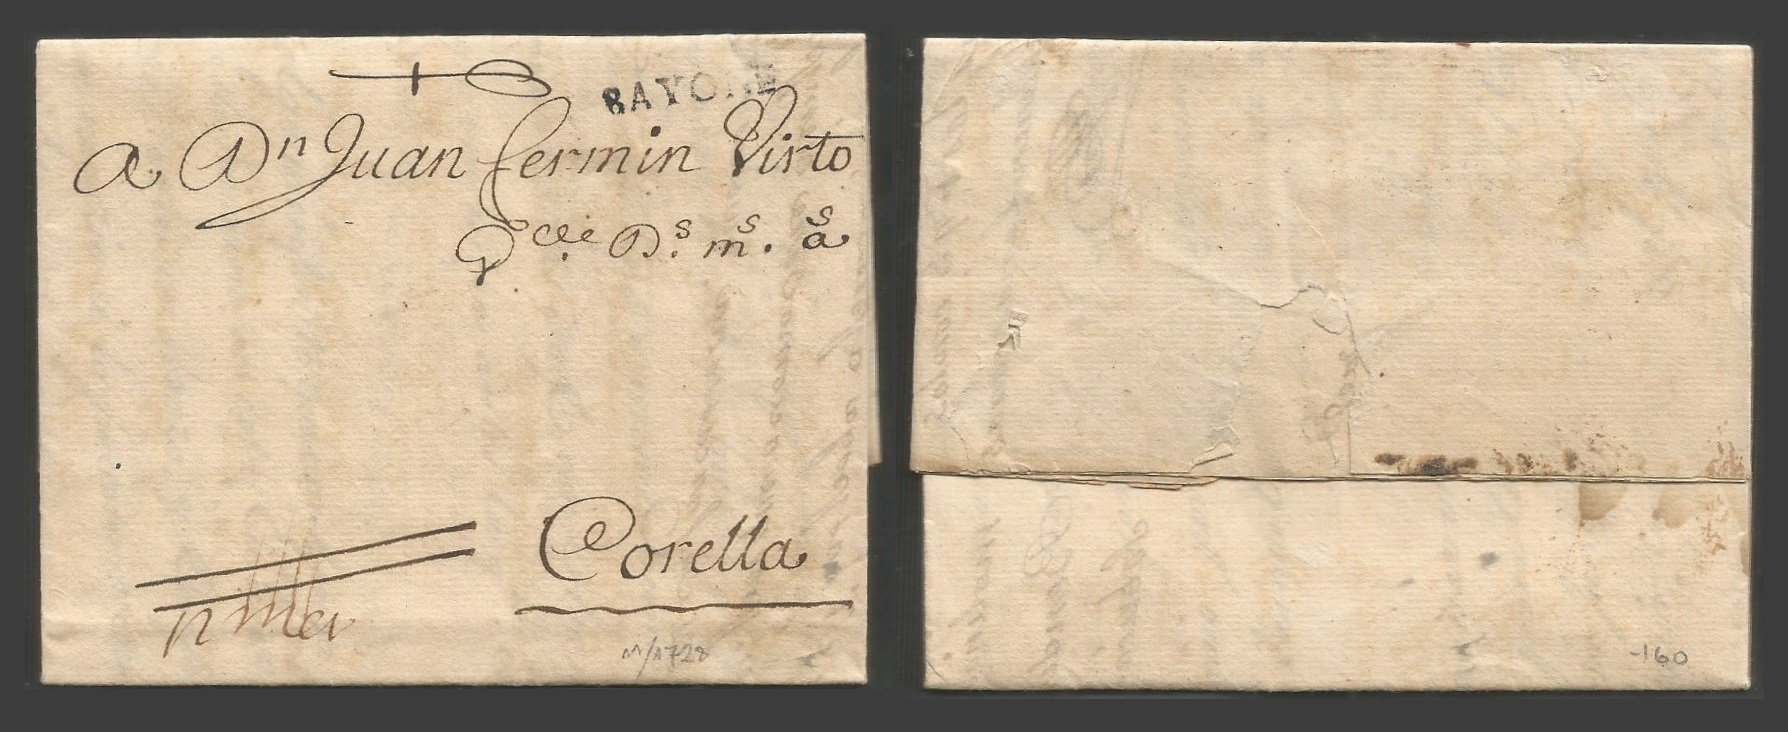 BAYONE
A Dn Juan Fermin Virto
gde Ds. ms. as
Corella
1728
-160